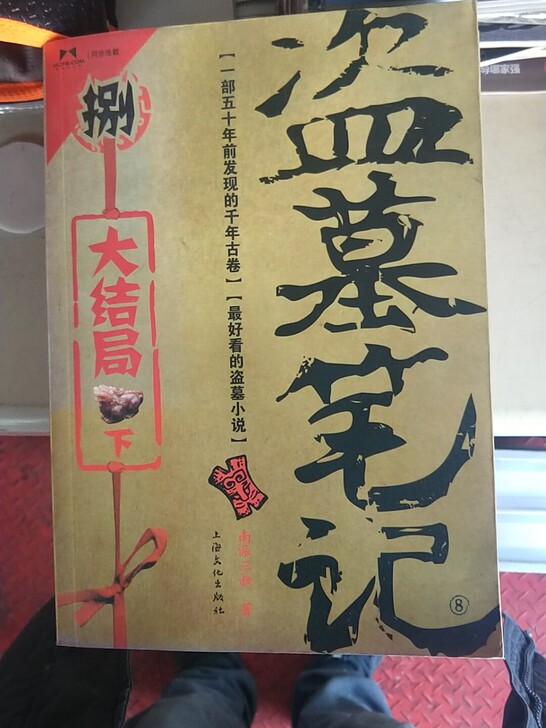 盗墓笔记
⑧
【一部五十年前发现的千年古卷】【最好看的盗墓小说】
南派三叔 著
上海文化出版社
捌
大结局
下